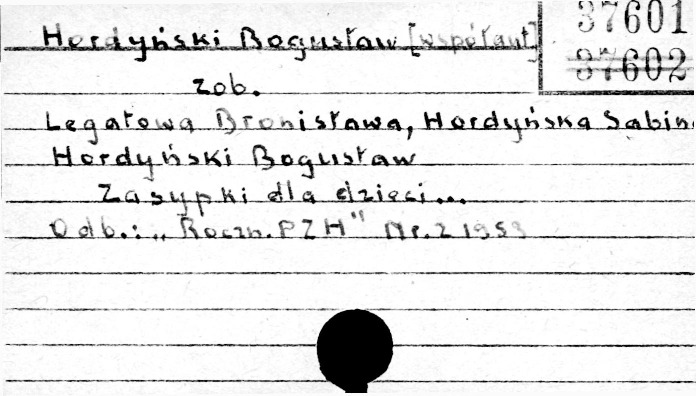 Hordyński Bogusław [współaut]
37601
37602
zob.
Legatowa Bronisława, Hordyńska Sabina
Hordyński Bogusław
Zasypki dla dzieci...
Odb.: „Roczn. PZH" Nr. 2 1953